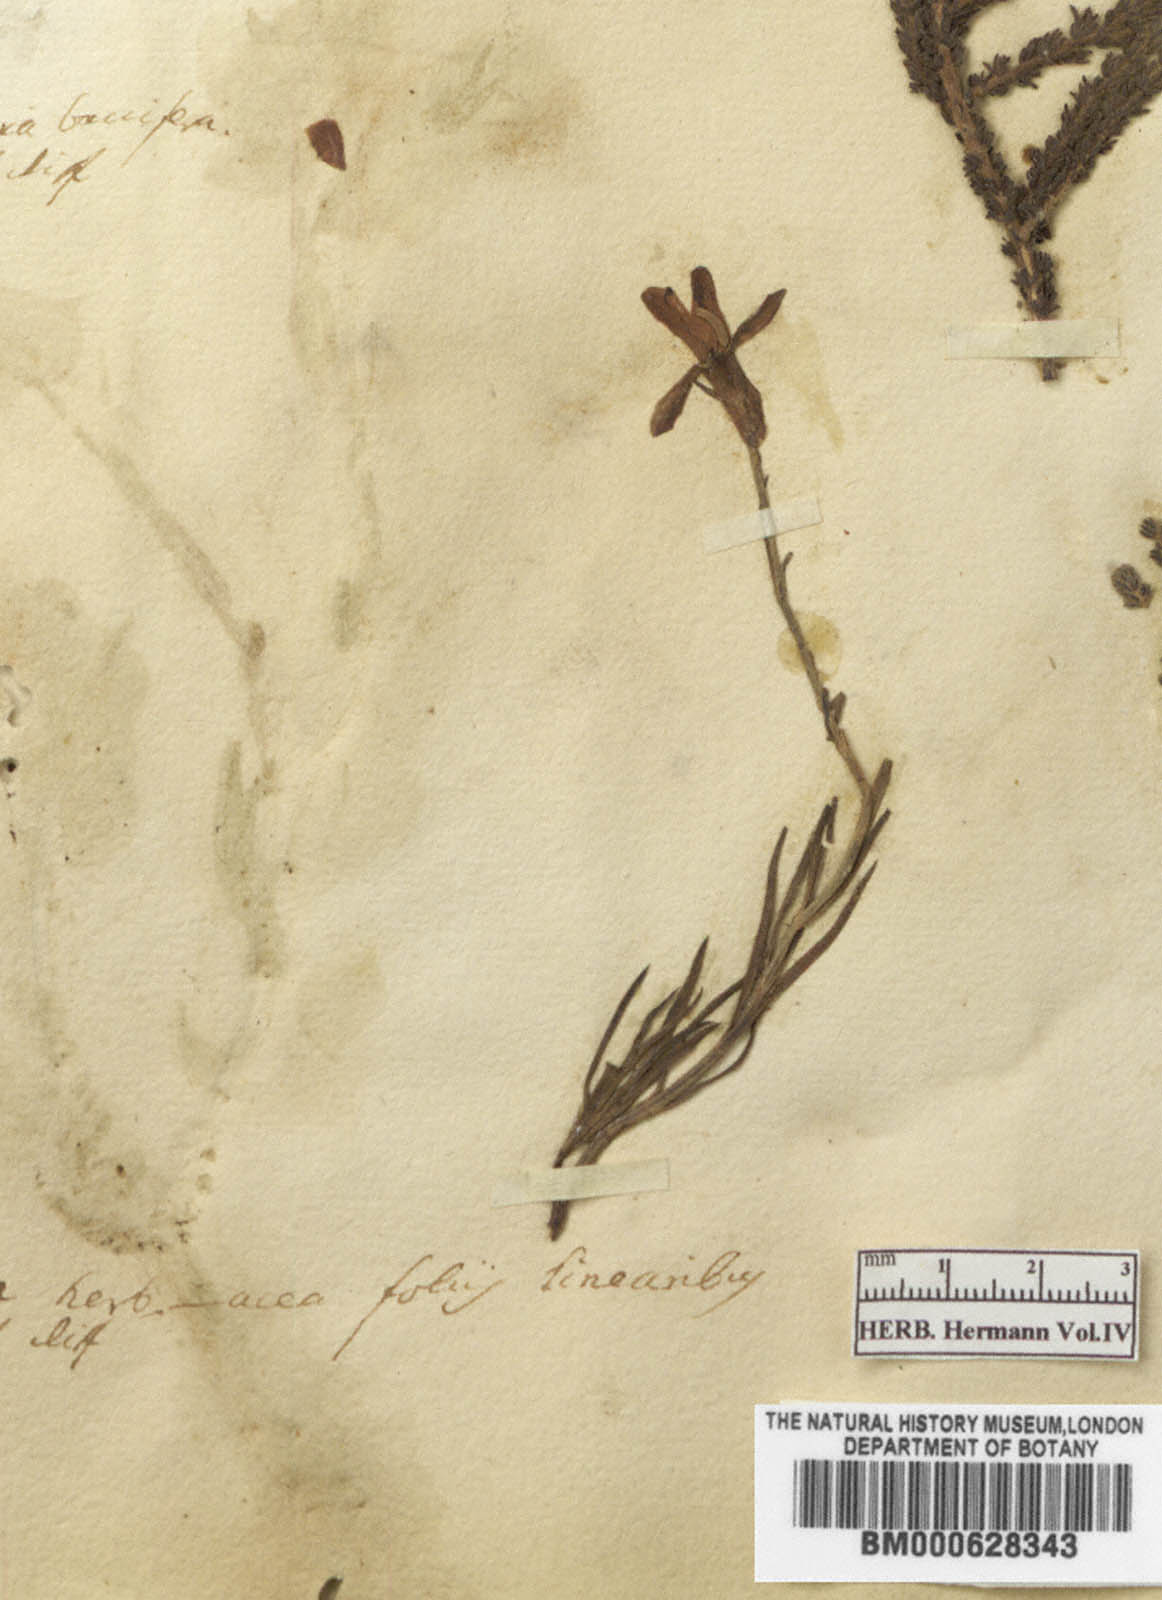 baccifera.
Cliff
herb-acea foliis linearibus
Cliff
mm 1 2 3
HERB. Hermann Vol.IV
THE NATURAL HISTORY MUSEUM,LONDON
DEPARTMENT OF BOTANY
BM000628343